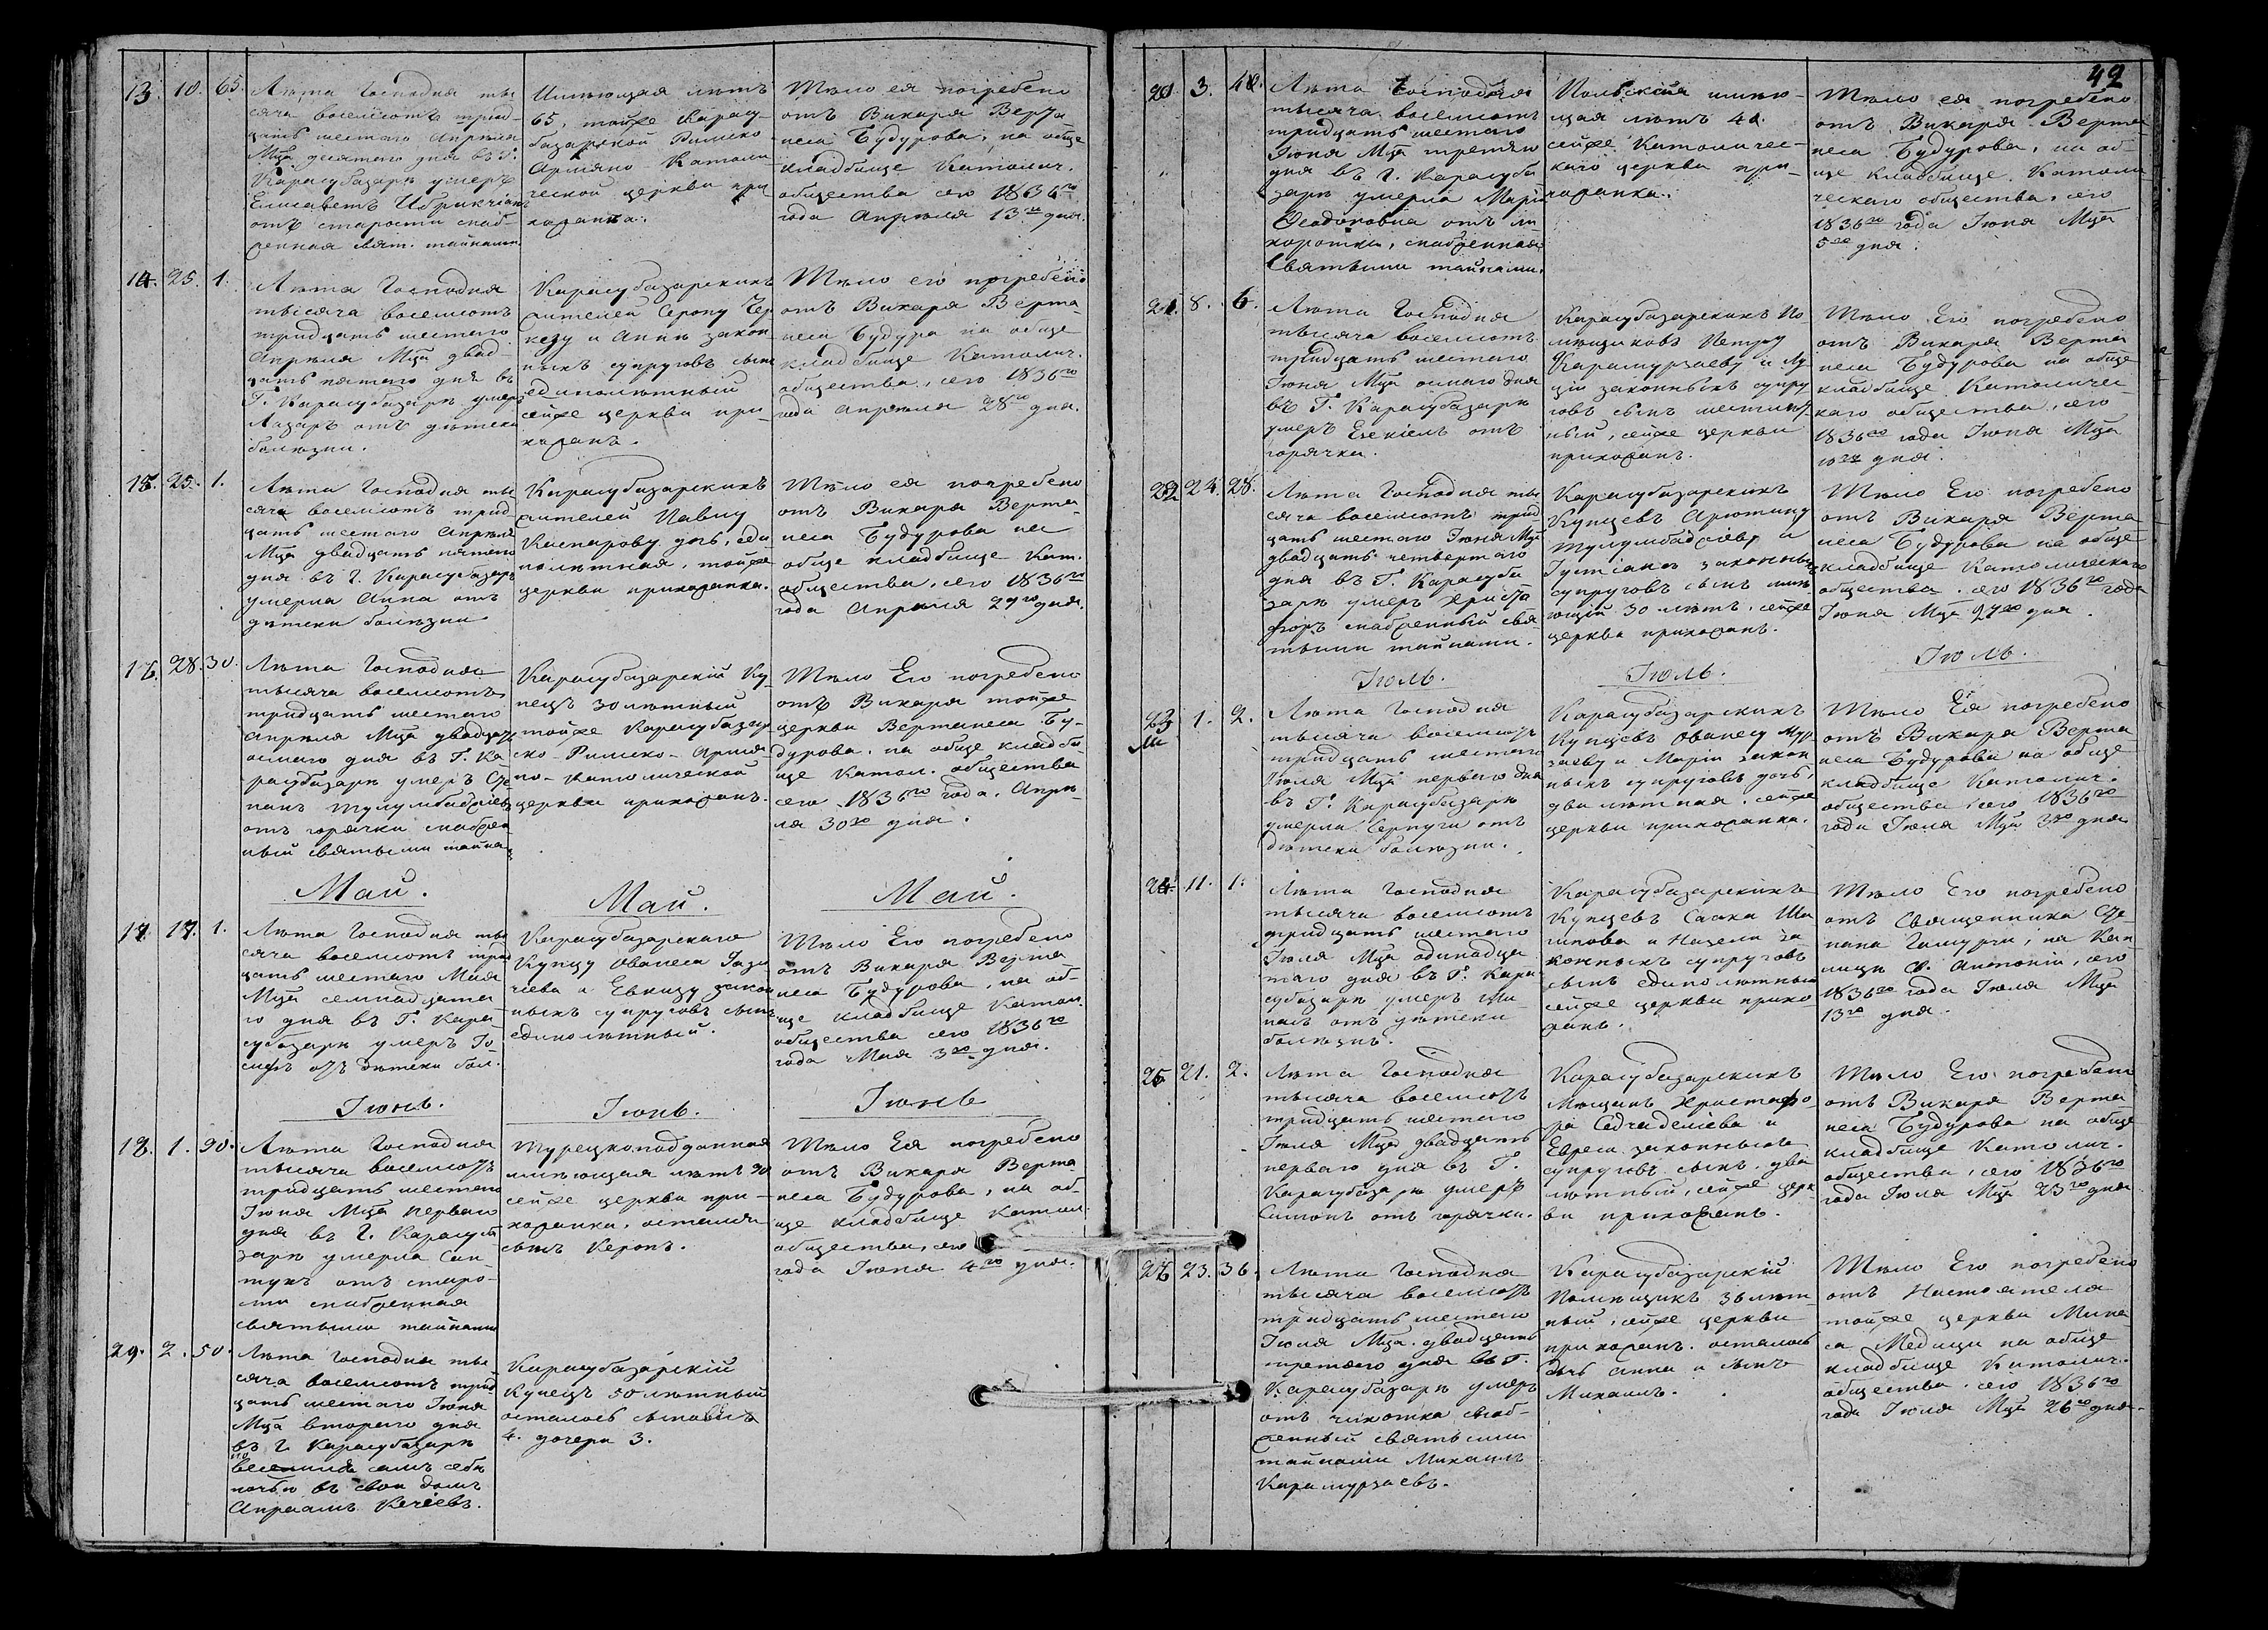 13. 10. 65.
Лѣта Господня ты-
сяча восемьсотъ трид-
цать шестаго Апрѣля
Мца десятаго дня въ Г.
Карасубазарѣ умерѣ
Елисаветъ
отъ старости снаб-
женная свят. тайнами
Имѣющая лѣтъ
65, тойже Карасу-
базарской Римско
Армяно Католи-
ческой церкви при
хожанка.
Тѣло ея погребено
отъ Викаря Верта-
неса Будурова, на обще
кладбище Католич.
общества сего 1836го
года Апрѣля 13го дня.
14. 25. 1.
Лѣта Господня
тысяча восемьсотъ
тридцать шестаго
Апрѣля Мца двад-
цать пятаго дня въ
Г. Карасубазарѣ умеръ
Лазарь отъ дѣтски
болѣзни.
Карасубазарскихъ
жителей Серопу
и Анны закон
ныхъ супруговъ сынъ
единолѣтный
сейже церкви при-
хожанъ.
Тѣло его погребено
отъ Викаря Верта-
неса Будура на обще
кладбище Католич.
общества, сего 1836го
года Апрѣля 28го дня.
15. 25. 1.
Лѣта Господня ты-
сяча восемьсотъ трид-
цать шестаго Апрѣля
Мца двадцать пятаго
дня въ Г. Карасубазарѣ
умерла Анна отъ
дѣтски болѣзни
Карасубазарскихъ
жителей Павлу
Каспарову дочь, еди-
нолѣтная, тойже
церкви прихожанка.
Тѣло ея погребено
отъ Викаря Верта-
неса Будурова на
обще кладбище Кат.
общества, сего 1836го
года Апрѣля 29го дня.
16. 28. 30.
Лѣта Господня
тысяча восемьсотъ
тридцать шестаго
Апрѣля Мца двадцать
осмаго дня въ Г. Ка-
расубазарѣ умеръ Сте-
панъ Тулумбаджіевъ
отъ горячки снабжен
ный святыми тайна
Карасубазарскій Ку-
пецъ 30 лѣтный
тойже Карасубазар
ско-Римско-Армя-
но-католической
церкви прихожанъ.
Тѣло Его погребено
отъ Викаря тойже
церкви Вертанеса Бу-
дурова, на обще кладби
ще Катол. общества
сего 1836го года, Апрѣ-
ля 30го дня.
Май.
Май.
Май.
17. 17. 1.
Лѣта Господня ты
сяча восемьсотъ трид
цать шестаго Мая
Мца семнадцата
го дня въ Г. Кара-
субазарѣ умеръ Іо-
сифъ отъ дѣтски бол.
Карасубазарскаго
Купцу Ованеса
и закон
ныхъ супруговъ сынъ
единолѣтный.
Тѣло Его погребено
отъ Викаря Верта-
неса Будурова, на об-
ще кладбище Катол.
общества сего 1836го
года Мая 3го дня.
Іюнь.
Іюнь.
Іюнь
18. 1. 90.
Лѣта Господня
тысяча восемьсотъ
тридцать шестаго
Іюня Мца перваго
дня въ Г. Карасуба
зарѣ умерла Сан-
тукъ отъ старо-
сти снабженная
святыми тайнами
Турецкоподданная
имѣющая лѣтъ 90
сейже церкви при-
хожанка, остался
сынъ Керопъ.
Тѣло Ея погребено
отъ Викаря Верта-
неса Будурова, на об-
ще кладбище Катол.
общества, сего
года Іюня 4го дня.
29. 2. 50.
Лѣта Господня ты-
сяча восемьсотъ трид
цать шестаго Іюня
Мца втораго дня
въ Г. Карасубазарѣ
самъ себѣ
ночью въ свои домъ
Апраамъ Кечіевъ.
Карасубазарскій
Купецъ 50 лѣтный
осталось сыновья
4. дочери 3.
42
20. 3. 40.
Лѣта Господня
тысяча восемьсотъ
тридцать шестаго
Іюня Мца третьяго
дня въ Г. Карасуба
зарѣ умерла Марія
отъ
снабженная
Святыми тайнами.
Польский имѣю-
щая лѣтъ 40
сейже Католичес-
каго церкви при-
хожанка.
Тѣло ея погребено
отъ Викаря Верта
неса Будурова, на об-
ще кладбище Католи
ческаго общества, сего
1836го года Іюня Мца
5го дня.
21. 8. 6.
Лѣта Господня
тысяча восемьсотъ
тридцать шестаго
Іюня Мца осмаго дня
въ Г. Карасубазарѣ
умеръ Езекіель отъ
горячки.
Карасубазарскихъ По
мѣщиковъ Петру
Карамурзаеву и Лу-
ціи законныхъ супру
говъ сынъ шестилѣт-
ный, сейже церкви
прихожанъ.
Тѣло Его погребено
отъ Викаря Верта
неса Будурова на обще
кладбище Католичес-
каго общества, сего
1836го года Іюня Мца
10го дня.
22. 24. 28.
Лѣта Господня ты-
сяча восемьсотъ трид
цать шестаго Іюня Мца
двадцать четвертаго
дня въ Г. Карасуба
зарѣ умеръ Христа
форъ снабженный свя-
тыми тайнами.
Карасубазарскихъ
Купцевъ Арютину
Тулумбаджіеву и
законныхъ
супруговъ сынъ имѣ
ющій 30 лѣтъ, сейже
церкви прихожанъ.
Тѣло Его погребено
отъ Викаря Верта-
неса Будурова на обще
кладбище Католическаго
общества, сего 1836го года
Іюня Мца 27го дня.
Іюль.
Іюль.
Іюль.
23 1. 2.
Лѣта Господня
тысяча восемьсотъ
тридцать шестаго
Іюля Мца перваго дня
въ Г. Карасубазарѣ
умерла Серпуги отъ
дѣтски болѣзни.
Карасубазарскихъ
Купцевъ Ованесу Мур-
заеву и Маріи закон
ныхъ супруговъ дочь,
два лѣтная, сейже
церкви прихожанка.
Тѣло Ея погребено
отъ Викаря Верта
неса Будурова на обще
кладбище Католич.
общества, сего 1836го
года Іюля Мца 3го дня
24. 11. 1.
Лѣта Господня
тысяча восемьсотъ
тридцать шестаго
Іюля Мца одинадца
таго дня въ Г. Кара
субазарѣ умеръ Ми-
насъ отъ дѣтски
болѣзнь.
Карасубазарскихъ
Купцевъ Саака
и Назели за
конныхъ супруговъ
сынъ единолѣтный
сейже церкви прихо
жанъ.
Тѣло Его погребено
отъ Священника Сте-
пана на
Св. Антоніи, сего
1836го года Іюля Мца
13го дня.
25 21. 2.
Лѣта Господня
тысяча восемьсотъ
тридцать шестаго
Іюля Мца двадцать
перваго дня въ Г.
Карасубазарѣ умеръ
Симонъ отъ горячки.
Карасубазарскихъ
Мѣщанъ Христафо-
ра и
законныхъ
супруговъ сынъ два
лѣтный, сейже церк-
ви прихожанъ.
Тѣло Его погребено
отъ Викаря Верта
неса Будурова на обще
кладбище Католич.
общества, сего 1836го
года Іюля Мца 23го дня
26 23. 36.
Лѣта Господня
тысяча восемьсотъ
тридцать шестаго
Іюля Мца двадцать
третяго дня въ Г.
Карасубазарѣ умеръ
отъ чихотка снаб-
женный святыми
тайнами Михаилъ
Карамурзаевъ.
Карасубазарскій
Помѣщикъ 36 лѣт-
ный, сейже церкви
прихожанъ. осталось
дочь Анна и сынъ
Михаилъ.
Тѣло Его погребено
отъ Настоятеля
тойже церкви Мина
са Медици на обще
кладбище Католич.
общества, сего 1836го
года Іюля Мца 26го дня.